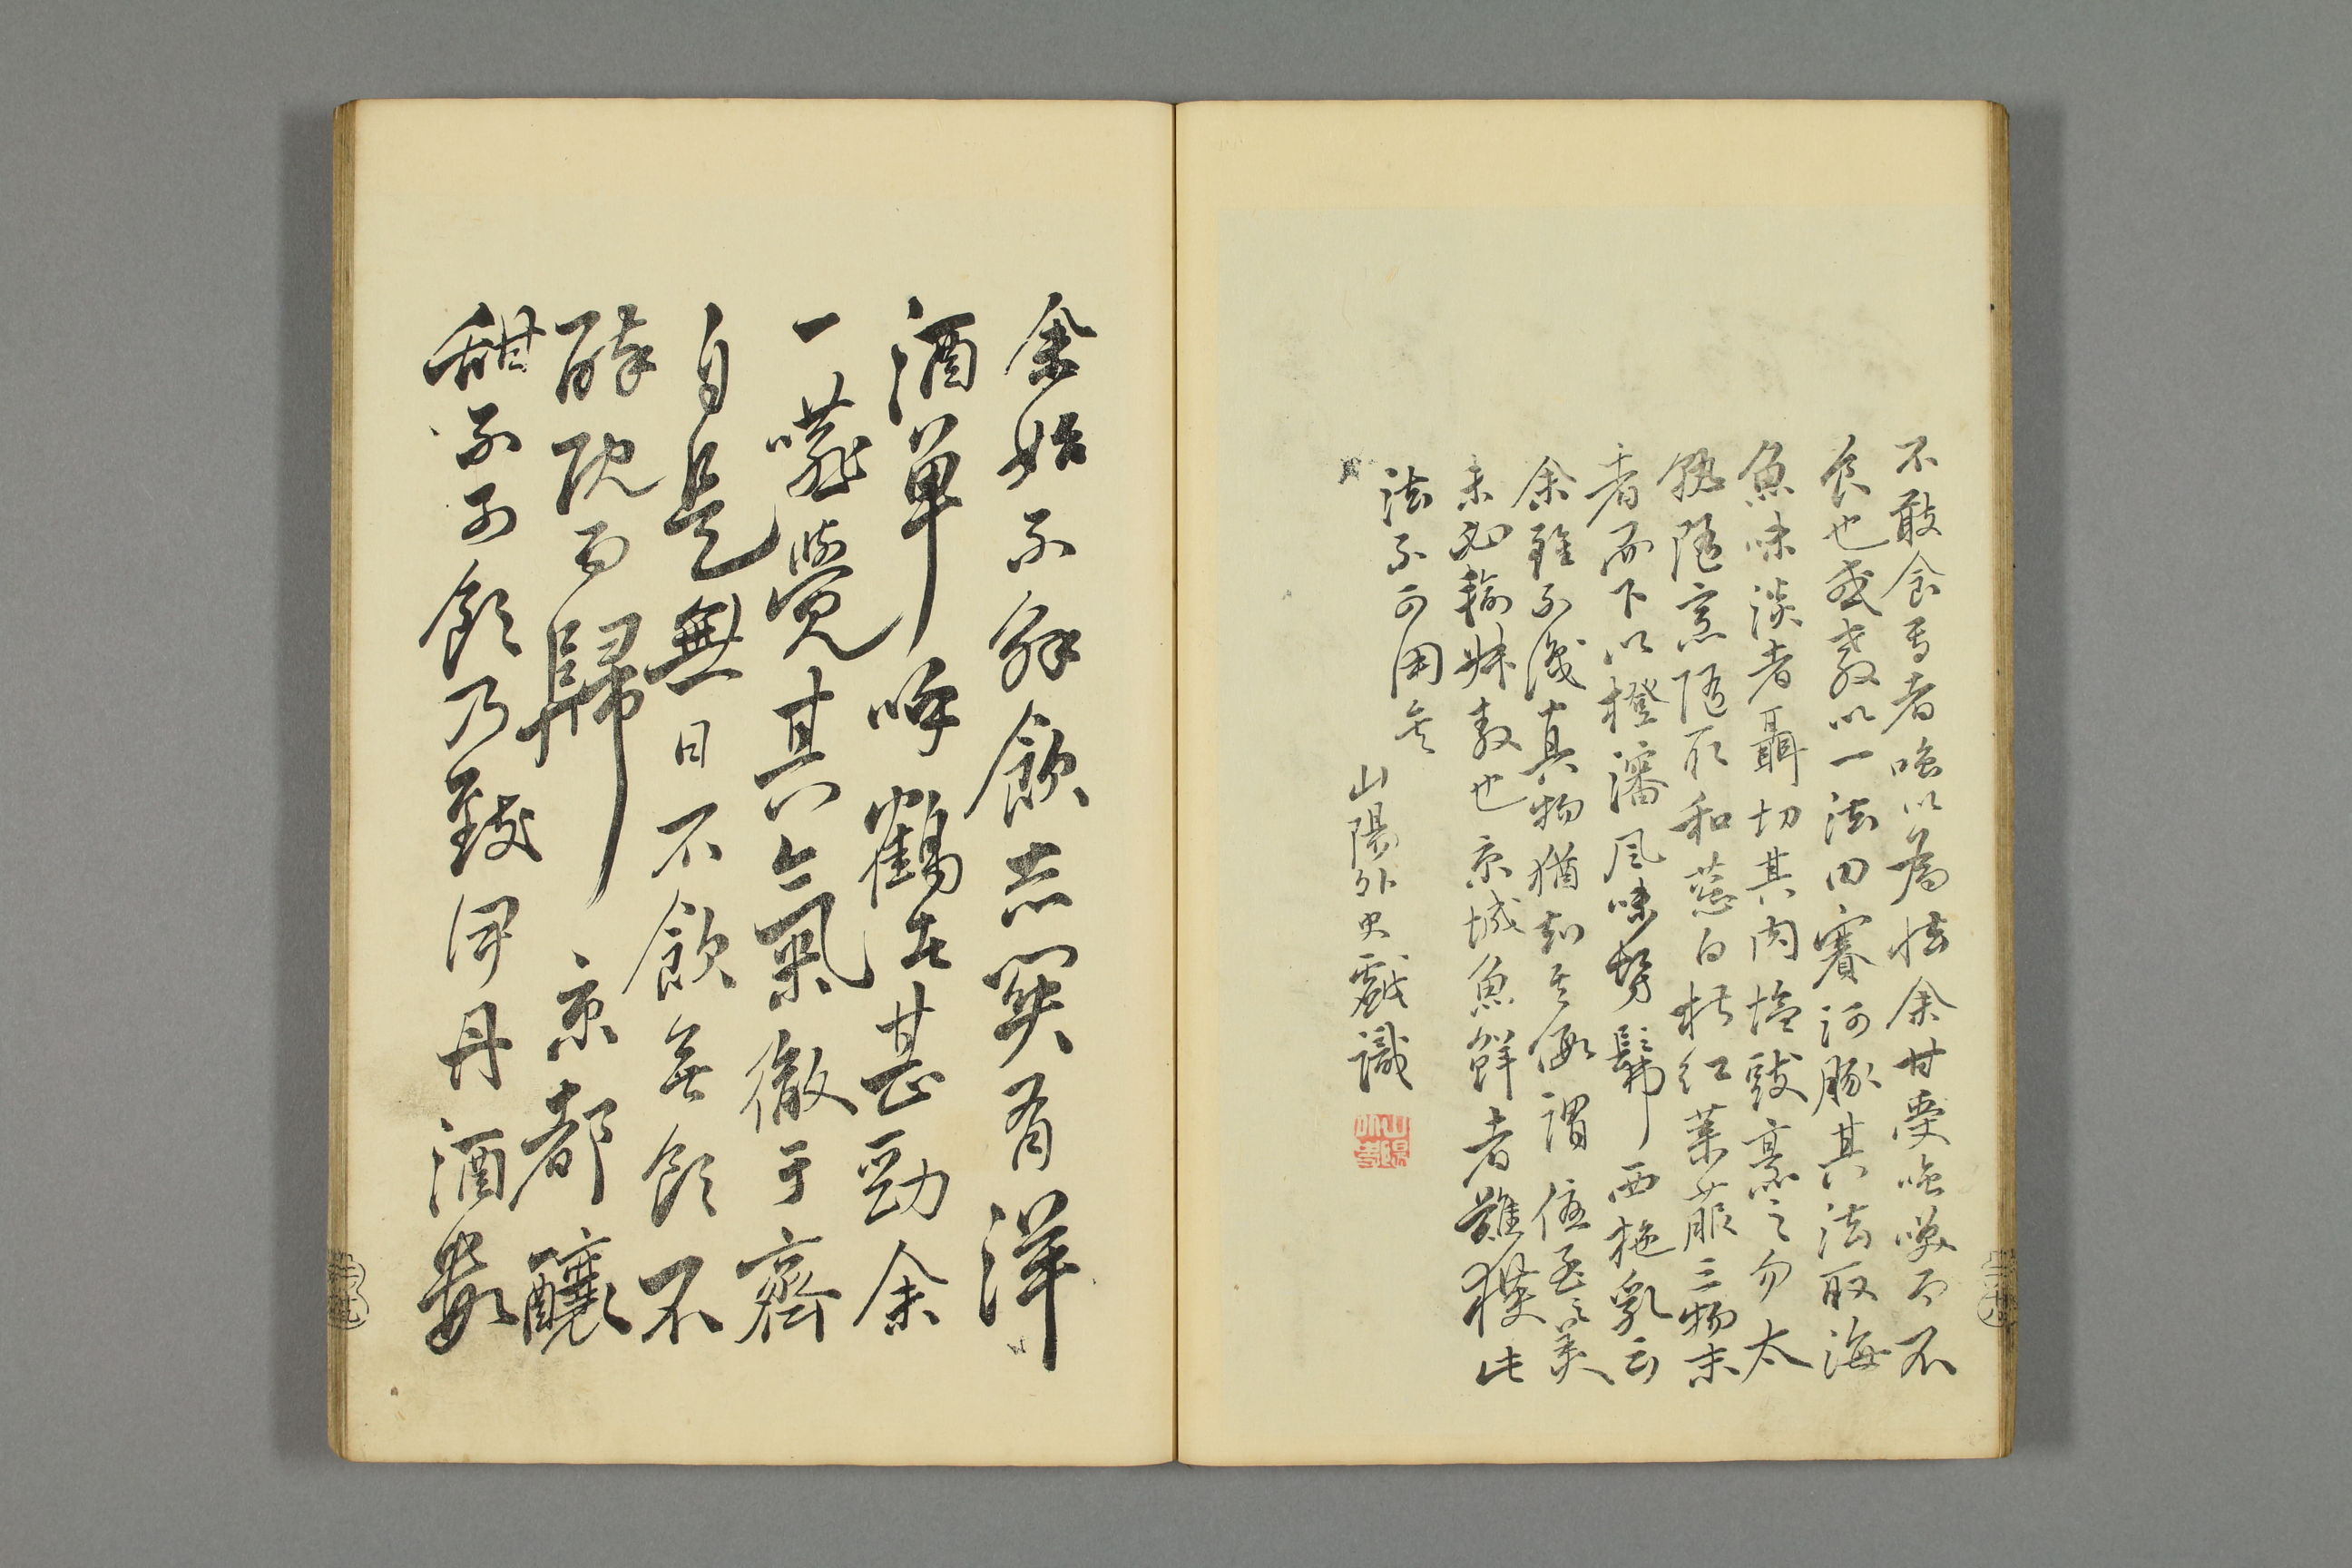 不敢食焉者嗤以爲怯余甘受嗤笑而不
食也或教以一法曰賽河豚其法取海
魚味淡者聶切其肉塩豉熬之勿太
熟隨烹隨取和葱白椒紅菜菔三物末
者而下以橙瀋風味髣髴西施乳云
余雖不識真物猶知其似謂侄至之美
未必輸姊妹也京城魚鮮者難獲此
法不可用矣
山陽外史戲識
余始不解飲赤關有洋
酒單呼鶴者甚勁余
一嚥覺其氣徹于齊
自是無日不飲無飲不
醉既而歸京都釀
甜不可飲乃致伊丹酒數